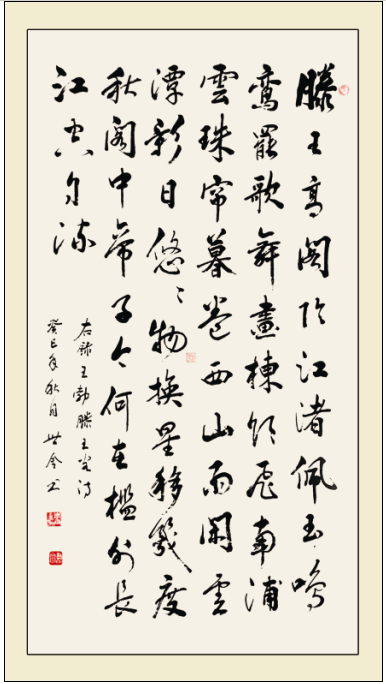 滕王高阁临江渚佩玉鸣
鸾罷歌舞畫棟朝飞南浦
雲珠帘暮卷西山雨闲雲
潭影日悠々物换星移幾度
秋阁中帝子今何在槛外长
江空自流
右録王勃滕王阁诗
癸巳年秋月世全书